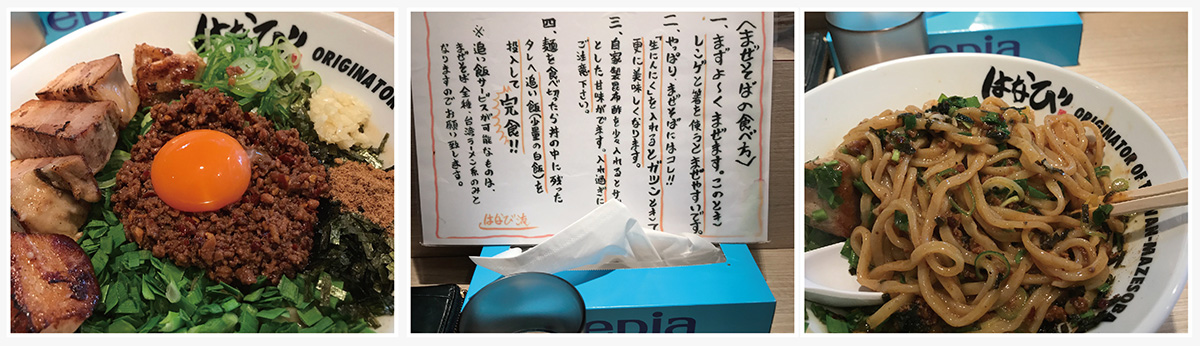 はなび
ORIGINATOR
epia
〈まぜそばの食べ方〉
一、まずよ〜くまぜます。このとき
レンゲと箸を使うとまぜやすいです。
二、やっぱり、まぜそばにはコレ!!
「生にんにく」を入れるとガツンときて
更に美味しくなります。
三、自家製昆布酢を少々入れるとサッ
とした甘味がでます。入れ過ぎに
ご注意下さい。
四、麺を食べ切ったら丼の中に残った
タレへ追い飯(少量の白飯)を
投入して完食!!
※追い飯サービスが可能なものは、
まぜそば全種、台湾ラーメン系のみと
なりますのでお願い致します。
はなび流
epia
epia
はなび
ORIGINATOR OF TAIWAN-MAZESOBA